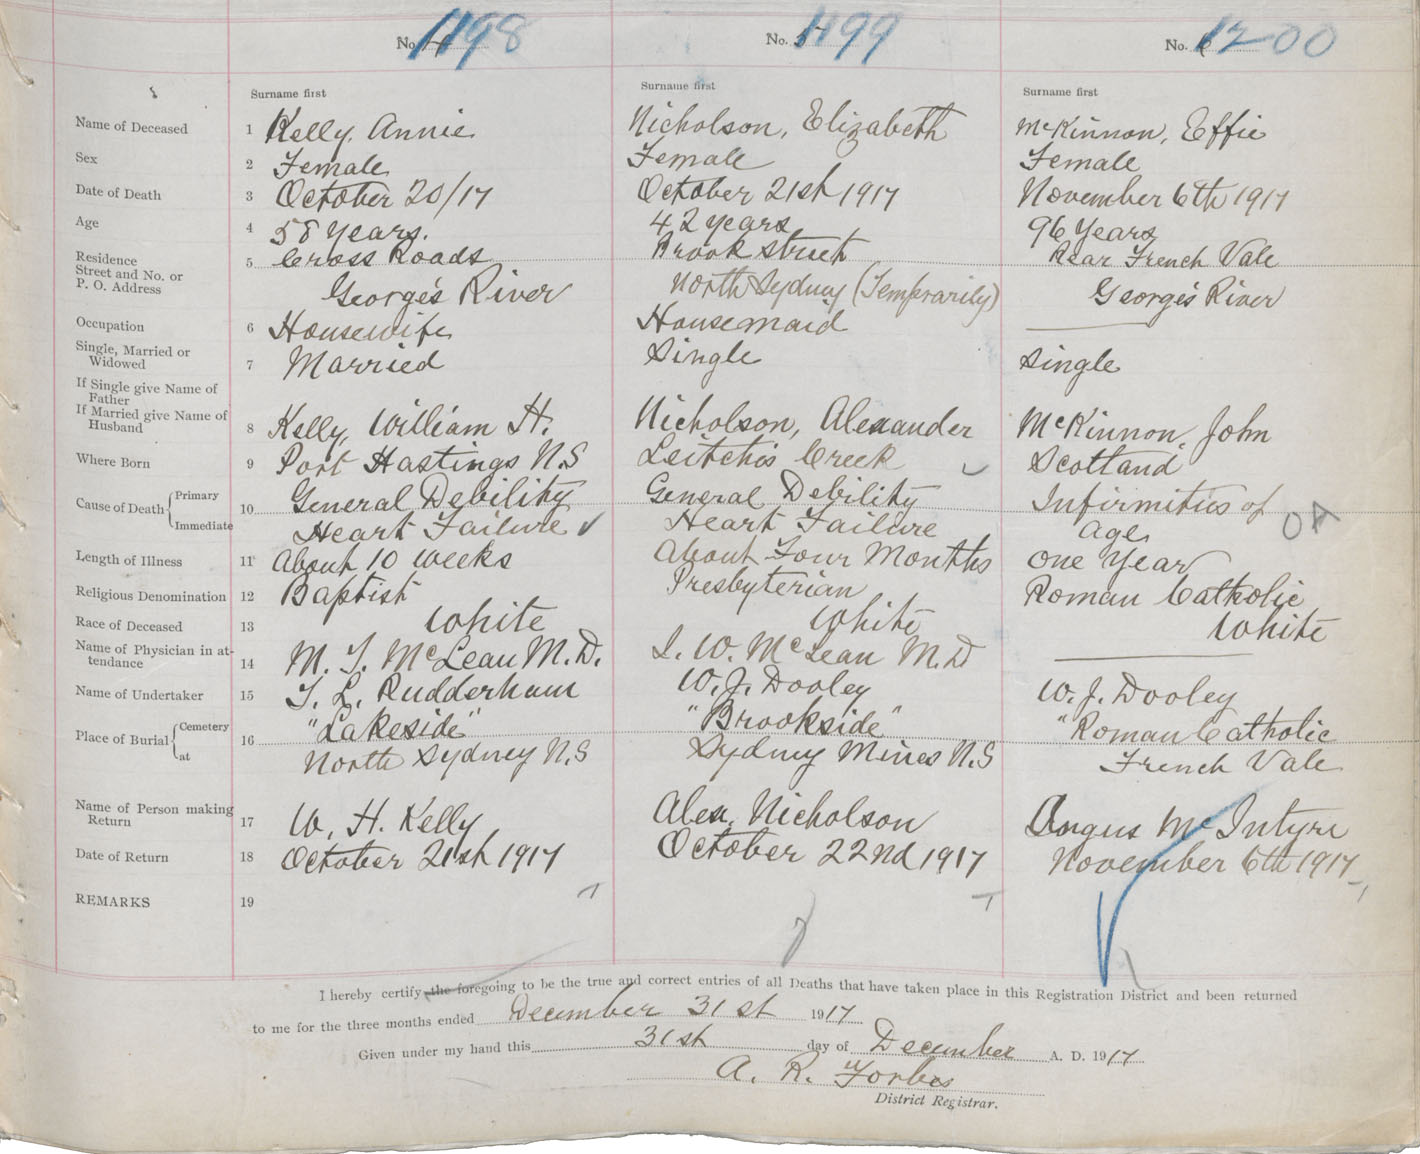 No. 1198 No. 1199 No. 1200
Surname first Surname first Surname first
Name of Deceased 1 Kelly, Annie Nicholson, Elizabeth McKinnon, Effie
Sex 2 Female Female Female
Date of Death 3 October 20/17 October 21st 1917 November 6th 1917
Age 4 58 Years. 42 years 96 Years
Residence 5 Cross Roads Brook street Rear French Vale
Street and No. or
P. O. Address George's River North Sydney (Temprarily) George's River
Occupation 6 Housewife Housemaid
Single, Married or
Widowed 7 Married Single Single
If Single give Name of
Father
If Married give Name of
Husband 8 Kelly, William H. Nicholson, Alexander McKinnon, John
Where Born 9 Port Hastings N.S Leitchis Creek Scotland
Cause of Death { Primary 10 General Debility General Debility Infirmities of
Immediate Heart Failure Heart Failure age OA
Length of Illness 11 About 10 weeks About Four Months One Year
Religious Denomination 12 Baptist Presbyterian Roman Catholic
Race of Deceased 13 White White White
Name of Physician in at-
tendance 14 M. T. McLean M.D. L. W. McLean M.D
Name of Undertaker 15 T. L. Rudderham W. J. Dooley W. J. Dooley
Place of Burial { Cemetery 16 "Lakeside" "Brookside" "Roman Catholic
at North Sydney N.S Sydney Mines N.S French Vale
Name of Person making
Return 17 W. H. Kelly Alex. Nicholson Angus McIntyre
Date of Return 18 October 21st 1917 October 22nd 1917 November 6th 1917
REMARKS 19
I hereby certify the foregoing to be the true and correct entries of all Deaths that have taken place in this Registration District and been returned
to me for the three months ended December 31st 1917
Given under my hand this 31st day of December A. D. 1917
A. R. Forbes
District Registrar.